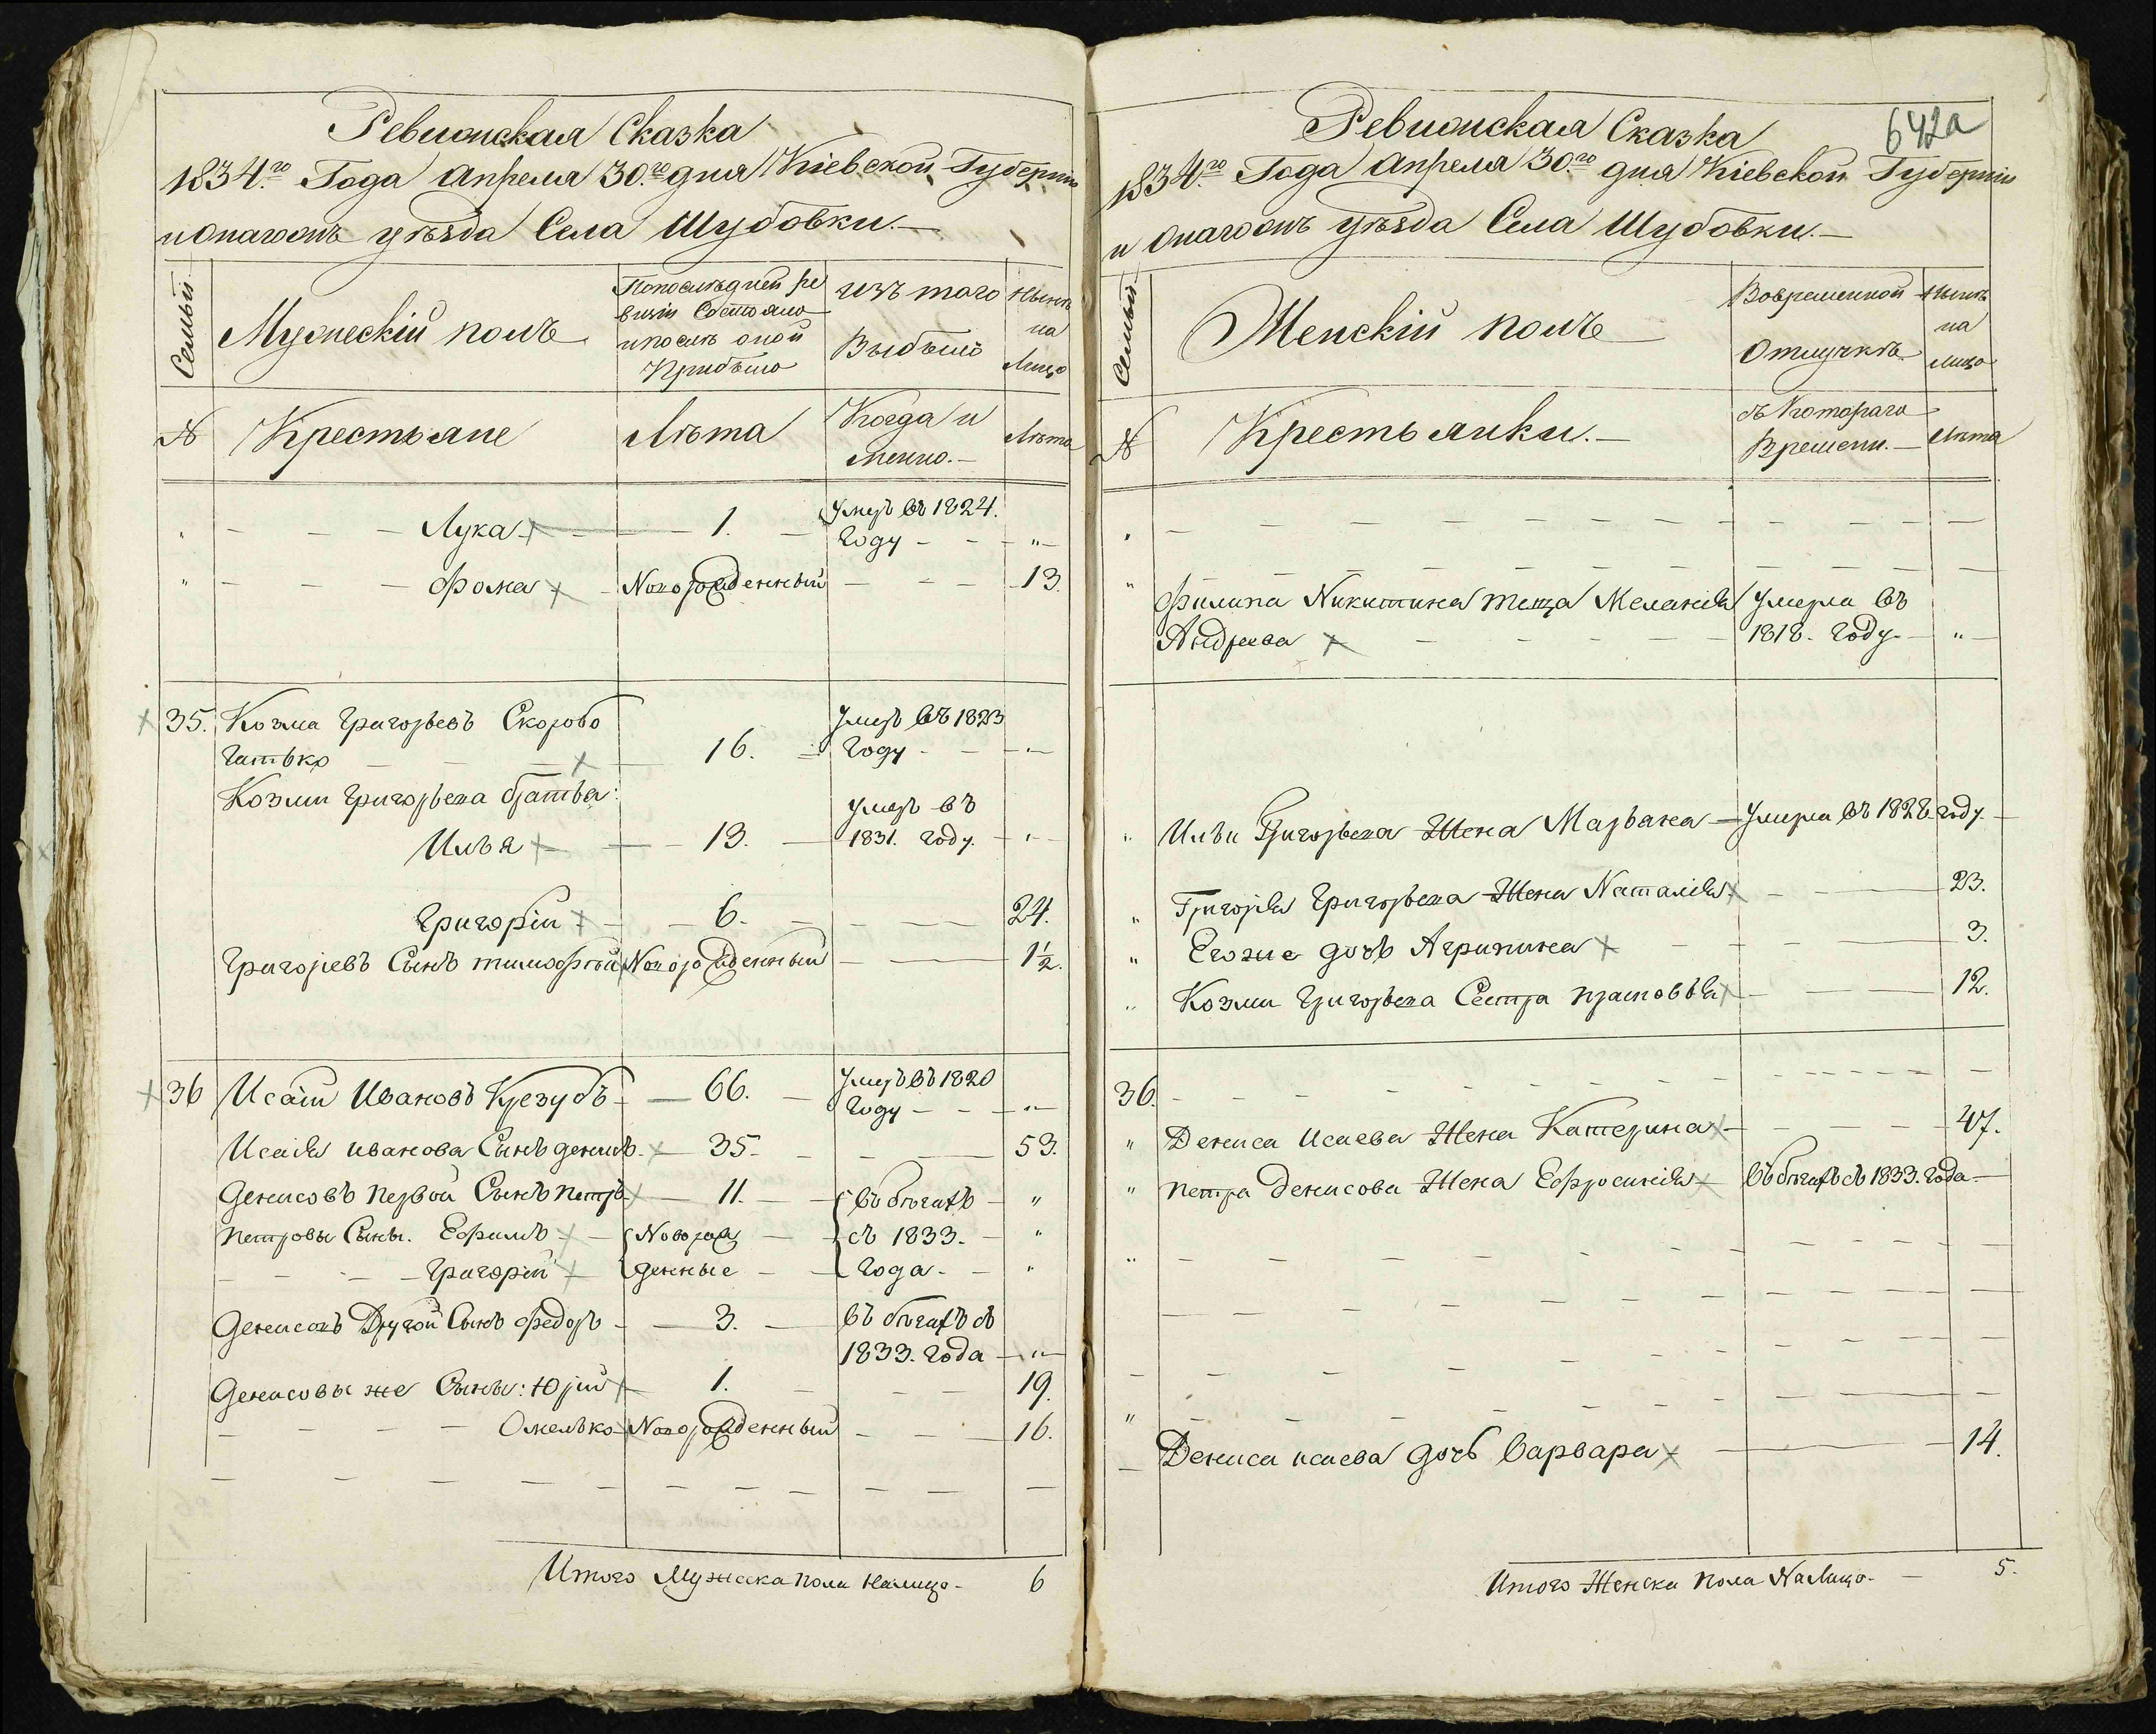 Ревизская Сказка
1834.го Года Апреля 30.го дня Кіевской Губерніи
уѣзда Села Шубовки.—
Семьи
Мужескій полъ
По последней ре
визіи Состояло
и после оной
Прибыло
изъ того
Выбыло
Нынѣ
на
Лицо
№
Крестьяне
Лѣта
Когда и
Лѣта
Лука
1.
Умеръ въ 1824.
Году
"
Фома
Новорожденный
13.
35.
Козма Григорьевъ Скоробо
гатько
16.
Умеръ въ 1823
Году
"
Козми Григорьева братья:
Илья
13.
Умеръ въ
1831. году.
"
Григорій
6.
24.
Григорьевъ Сынъ Тимофтей
Новорожденный
1½.
36
Исаій Ивановъ Крезубъ
66.
Умеръ въ 1820
Году
"
Исаія Иванова Сынъ Денисъ
35
53.
Денисовъ первой Сынъ Петръ
11.
въ бегахъ
"
Петровы Сыны. Ефимъ
Новорож
съ 1833.
"
Григорій
денные
Года
"
Денисовъ Другой Сынъ Федоръ
3.
въ бегахъ съ
1833. года
"
Денисовы же Сыны: Юрій
1.
19.
Омелько
Новорожденный
16.
Итого Мужеска пола Налицо
6
642а
Ревизская Сказка
1834.го Года Апреля 30.го дня Кіевской Губерніи
уѣзда Села Шубовки.—
Семьи
Женскій полъ
Вовременной
Отлучкѣ
Нынѣ
на
Лицо
№
Крестьянки.—
съ Котораго
Времени.—
Лѣта
"
"
Филипа Никитина теща Меланія
Умерла въ
Андреева
1818. году
"
"
Ильи Григорьева Жена Марьяна
Умерла въ 1828. году
"
Григорія Григорьева Жена Наталія
23.
"
Егоже дочь Агрипина
3.
"
Козми Григорьева Сестра Прасковья
12.
36.
"
Дениса Исаева Жена Катерина
47.
"
Петра Денисова Жена Ефросинія
въ бегахъ съ 1833. года
"
"
Дениса Исаева дочь Варвара
14.
Итого Женска пола Налицо
5.